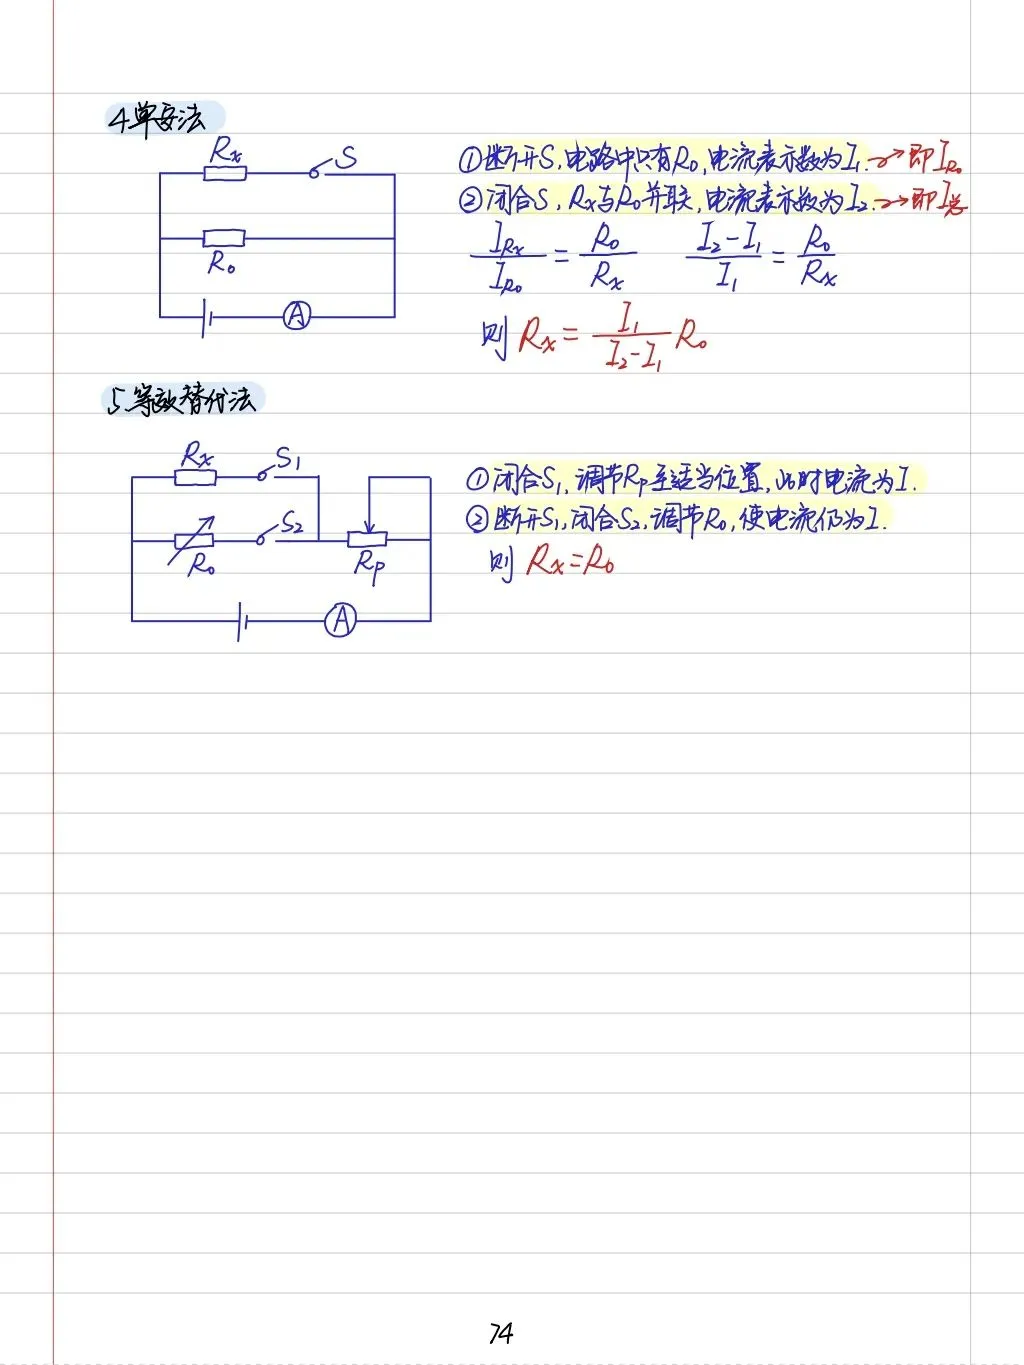 4.单安法
Rx S
R₀
A
①断开S,电路中只有R₀,电流表示数为I₁.→即I_R₀
②闭合S,Rx与R₀并联,电流表示数为I₂.→即I总
I_Rx/I_R₀ = R₀/Rx (I₂-I₁)/I₁ = R₀/Rx
则 Rx = I₁/(I₂-I₁) R₀
5.等效替代法
Rx S₁
S₂
R₀ Rp
A
①闭合S₁,调节Rp至适当位置,此时电流为I.
②断开S₁,闭合S₂,调节R₀,使电流仍为I.
则 Rx=R₀
74